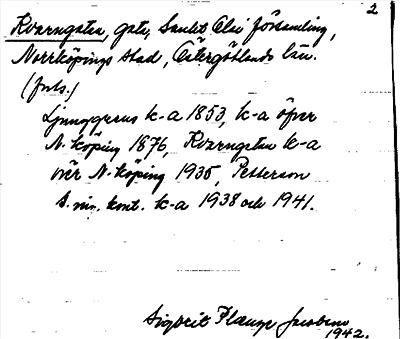 2
Kvarngatan, gata, Sankt Olai församling,
Norrköpings stad, Östergötlands län.
(forts.)
Ljunggrens k-a 1853, k-a över
N-köping 1876, Kvarngatan k-a
över N-köping 1935, Petterson
s. nin. kont. k-a 1938 och 1941.
Sigbrit Plænge Jacobson
1942.